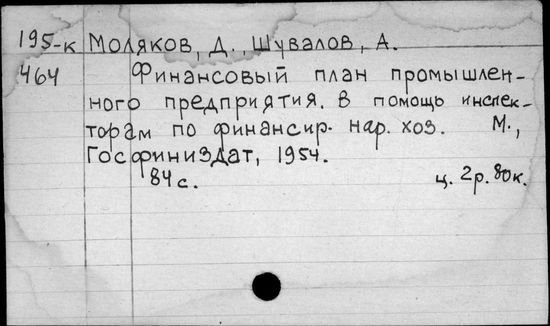 195-к Моляков, Д., Шувалов, А.
464 Финансовый план промышлен-
ного предприятия. В помощь инспек-
торам по финансир. нар. хоз. М.,
Госфиниздат, 1954.
84 с. ц. 2р. 80к.